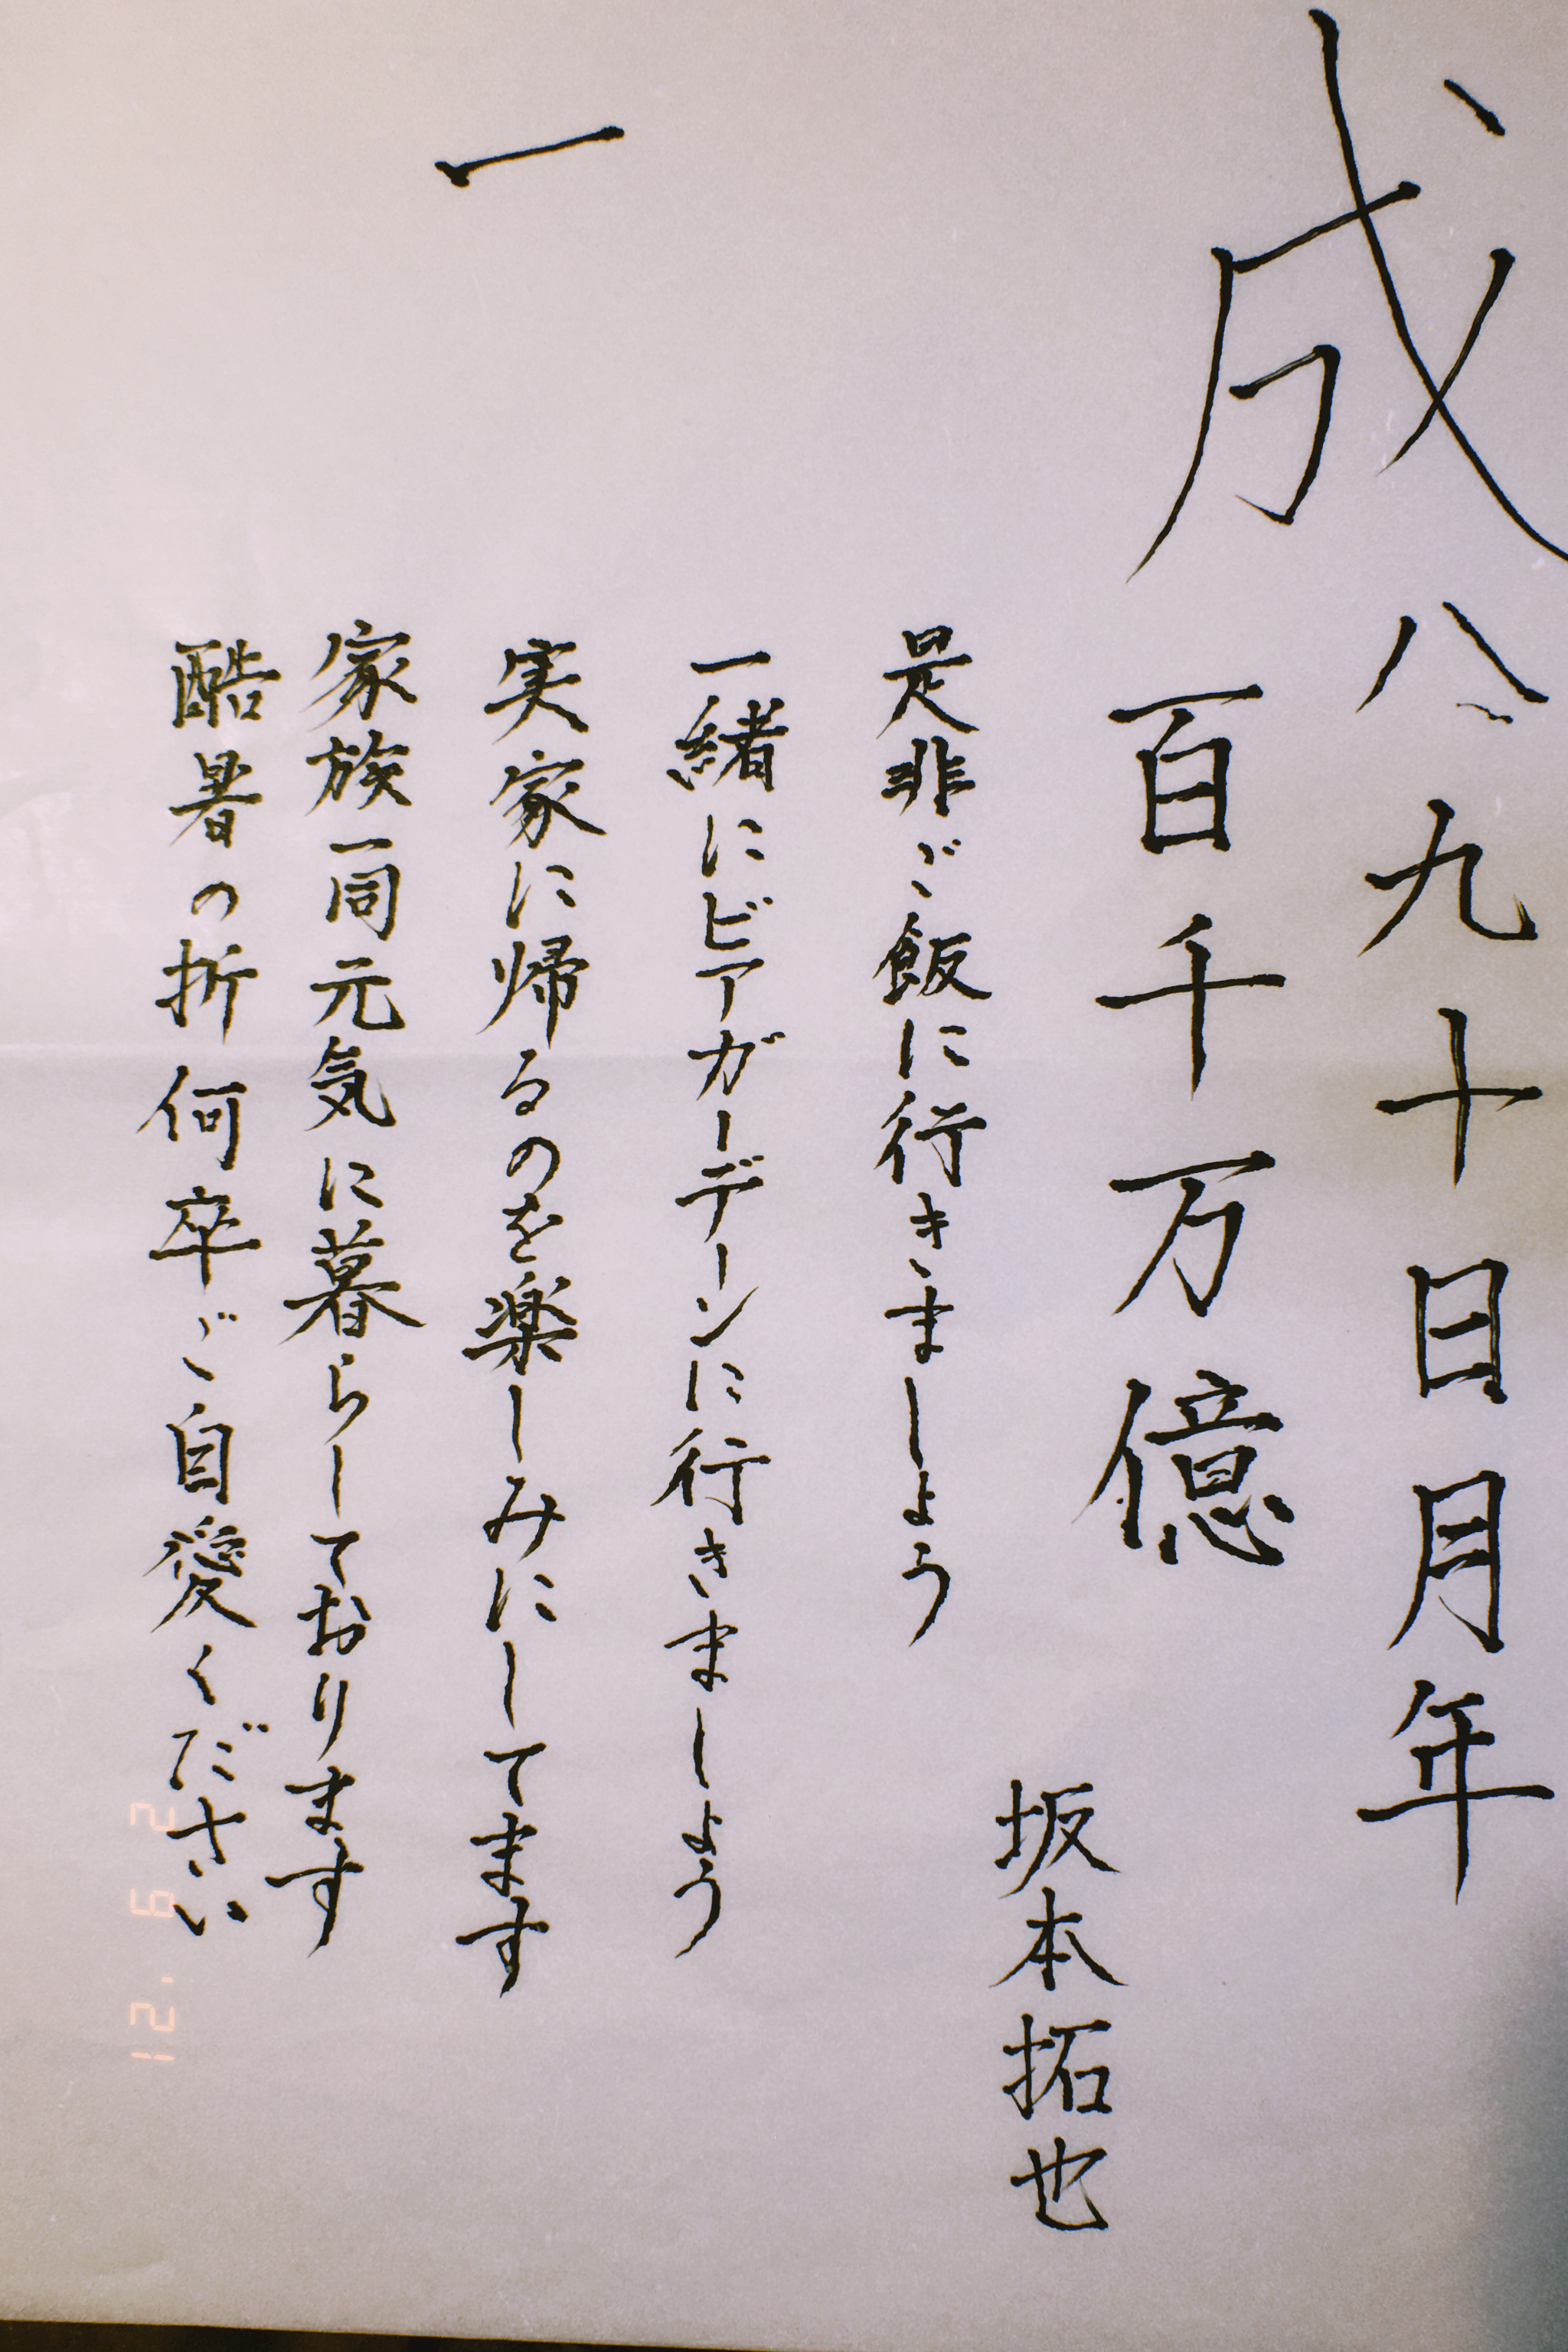 成
八九十日月年
百千万億
坂本拓也
是非ご飯に行きましょう
一緒にビアガーデンに行きましょう
一
実家に帰るのを楽しみにしてます
家族一同元気に暮らしております
酷暑の折何卒ご自愛ください
2 6 '21